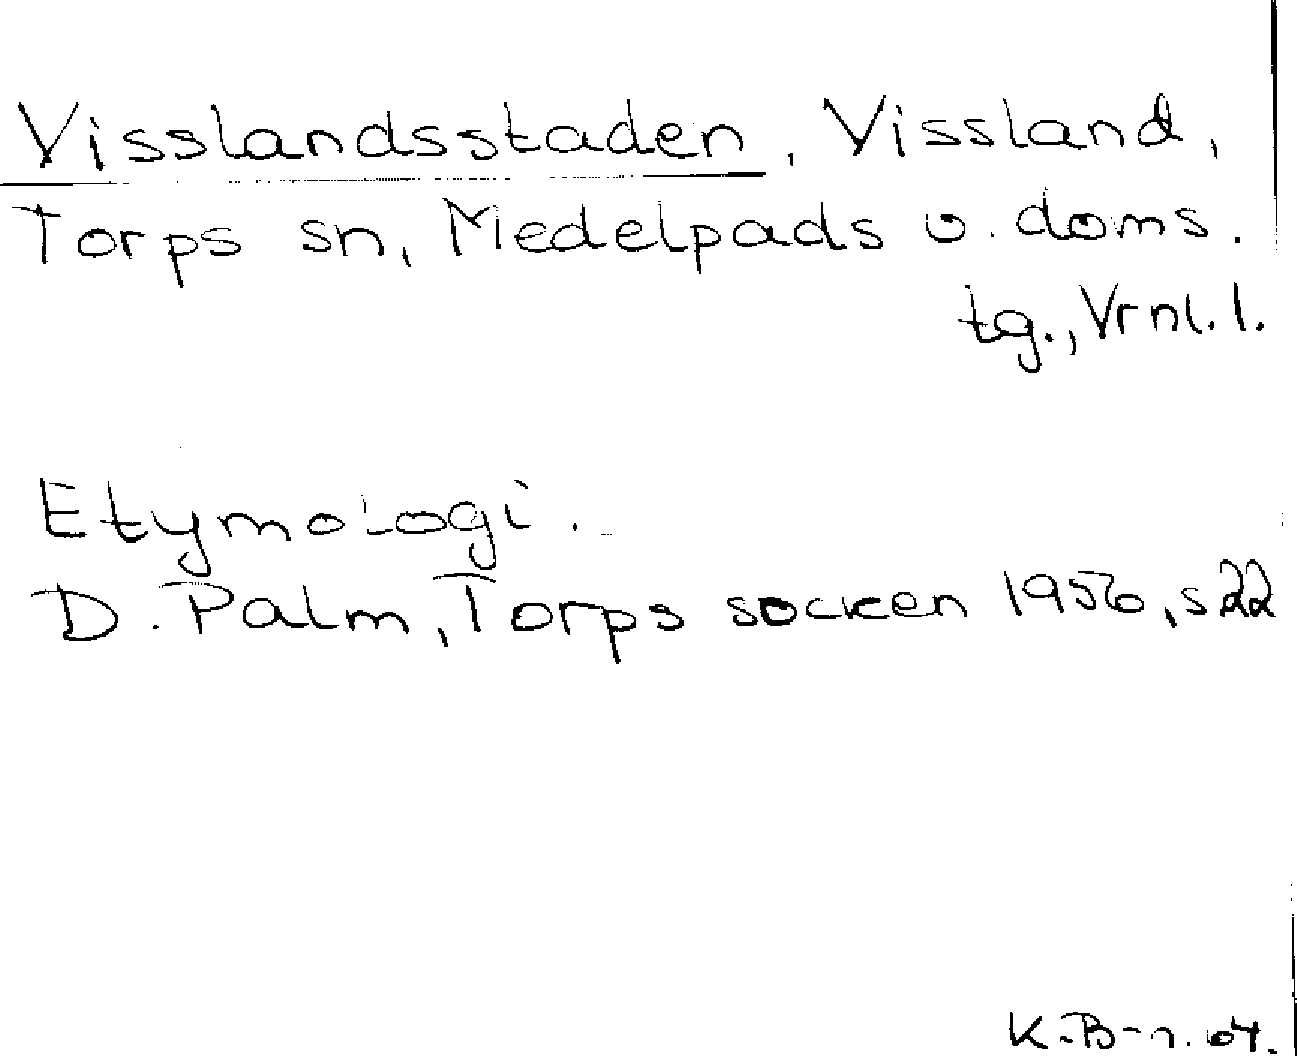 Visslandsstaden, Vissland,
Torps sn, Medelpads v. doms.
tg., Vrnl. l.
Etymologi.
D. Palm, Torps socken 1956, s 22
K.B-n. 64.